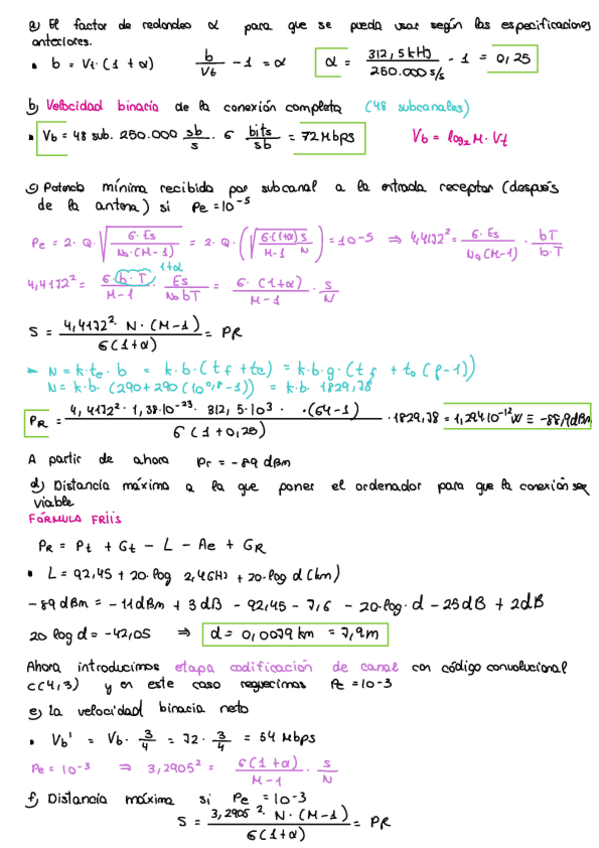 a) El factor de redondeo α para que se pueda usar según las especificaciones
anteriores.
• b = Vt·(1+α)   b/Vt - 1 = α   α = 312,5 kHz / 250.000 s/s - 1 = 0,25
b) Velocidad binaria de la conexión completa (48 subcanales)
• Vb = 48 sub. 250.000 sb/s · 6 bits/sb = 72 Mbps   Vb = log₂M·Vt
c) Potencia mínima recibida por subcanal a la entrada receptor (después
de la antena) si Pe = 10⁻⁵
Pe = 2·Q·√(6·Es / N₀·(M-1)) = 2·Q·(√(6·(1+α) S / M-1 N)) = 10⁻⁵ ⇒ 4,4172² = 6·Es / N₀(M-1) · bT / b·T
4,4172² = 6·b·T / M-1 · Es / N₀bT = 6·(1+α) / M-1 · S/N
1+α
S = 4,4172²·N·(M-1) / 6(1+α) = PR
- N = k·te·b = k·b·(tf+te) = k·b·g·(tf + t₀(f-1))
N = k·b·(290+290(10^0,8-1)) = k·b·1829,78
PR = 4,4172²·1,38·10⁻²³·312,5·10³··(64-1) / 6(1+0,25) · 1829,78 = 1,294·10⁻¹² W ≡ -88,9dBm
A partir de ahora Pr = -89 dBm
d) Distancia máxima a la que poner el ordenador para que la conexión sea
viable
FÓRMULA FRIIS
PR = Pt + Gt - L - Ae + GR
• L = 92,45 + 20·log 2,4GHz + 20·log d (km)
-89 dBm = -11dBm + 3 dB - 92,45 - 7,6 - 20·log·d - 25dB + 2dB
20 log d = -42,05 ⇒ d = 0,0079 km = 7,9m
Ahora introducimos etapa codificación de canal con código convolucional
CC(4,3) y en este caso requerimos Pe = 10-3
e) La velocidad binaria neta
• Vb' = Vb·3/4 = 72·3/4 = 54 Mbps
Pe = 10⁻³ ⇒ 3,2905² = 6(1+α) / M-1 · S/N
f) Distancia máxima si Pe = 10-3
S = 3,2905²·N·(M-1) / 6(1+α) = PR